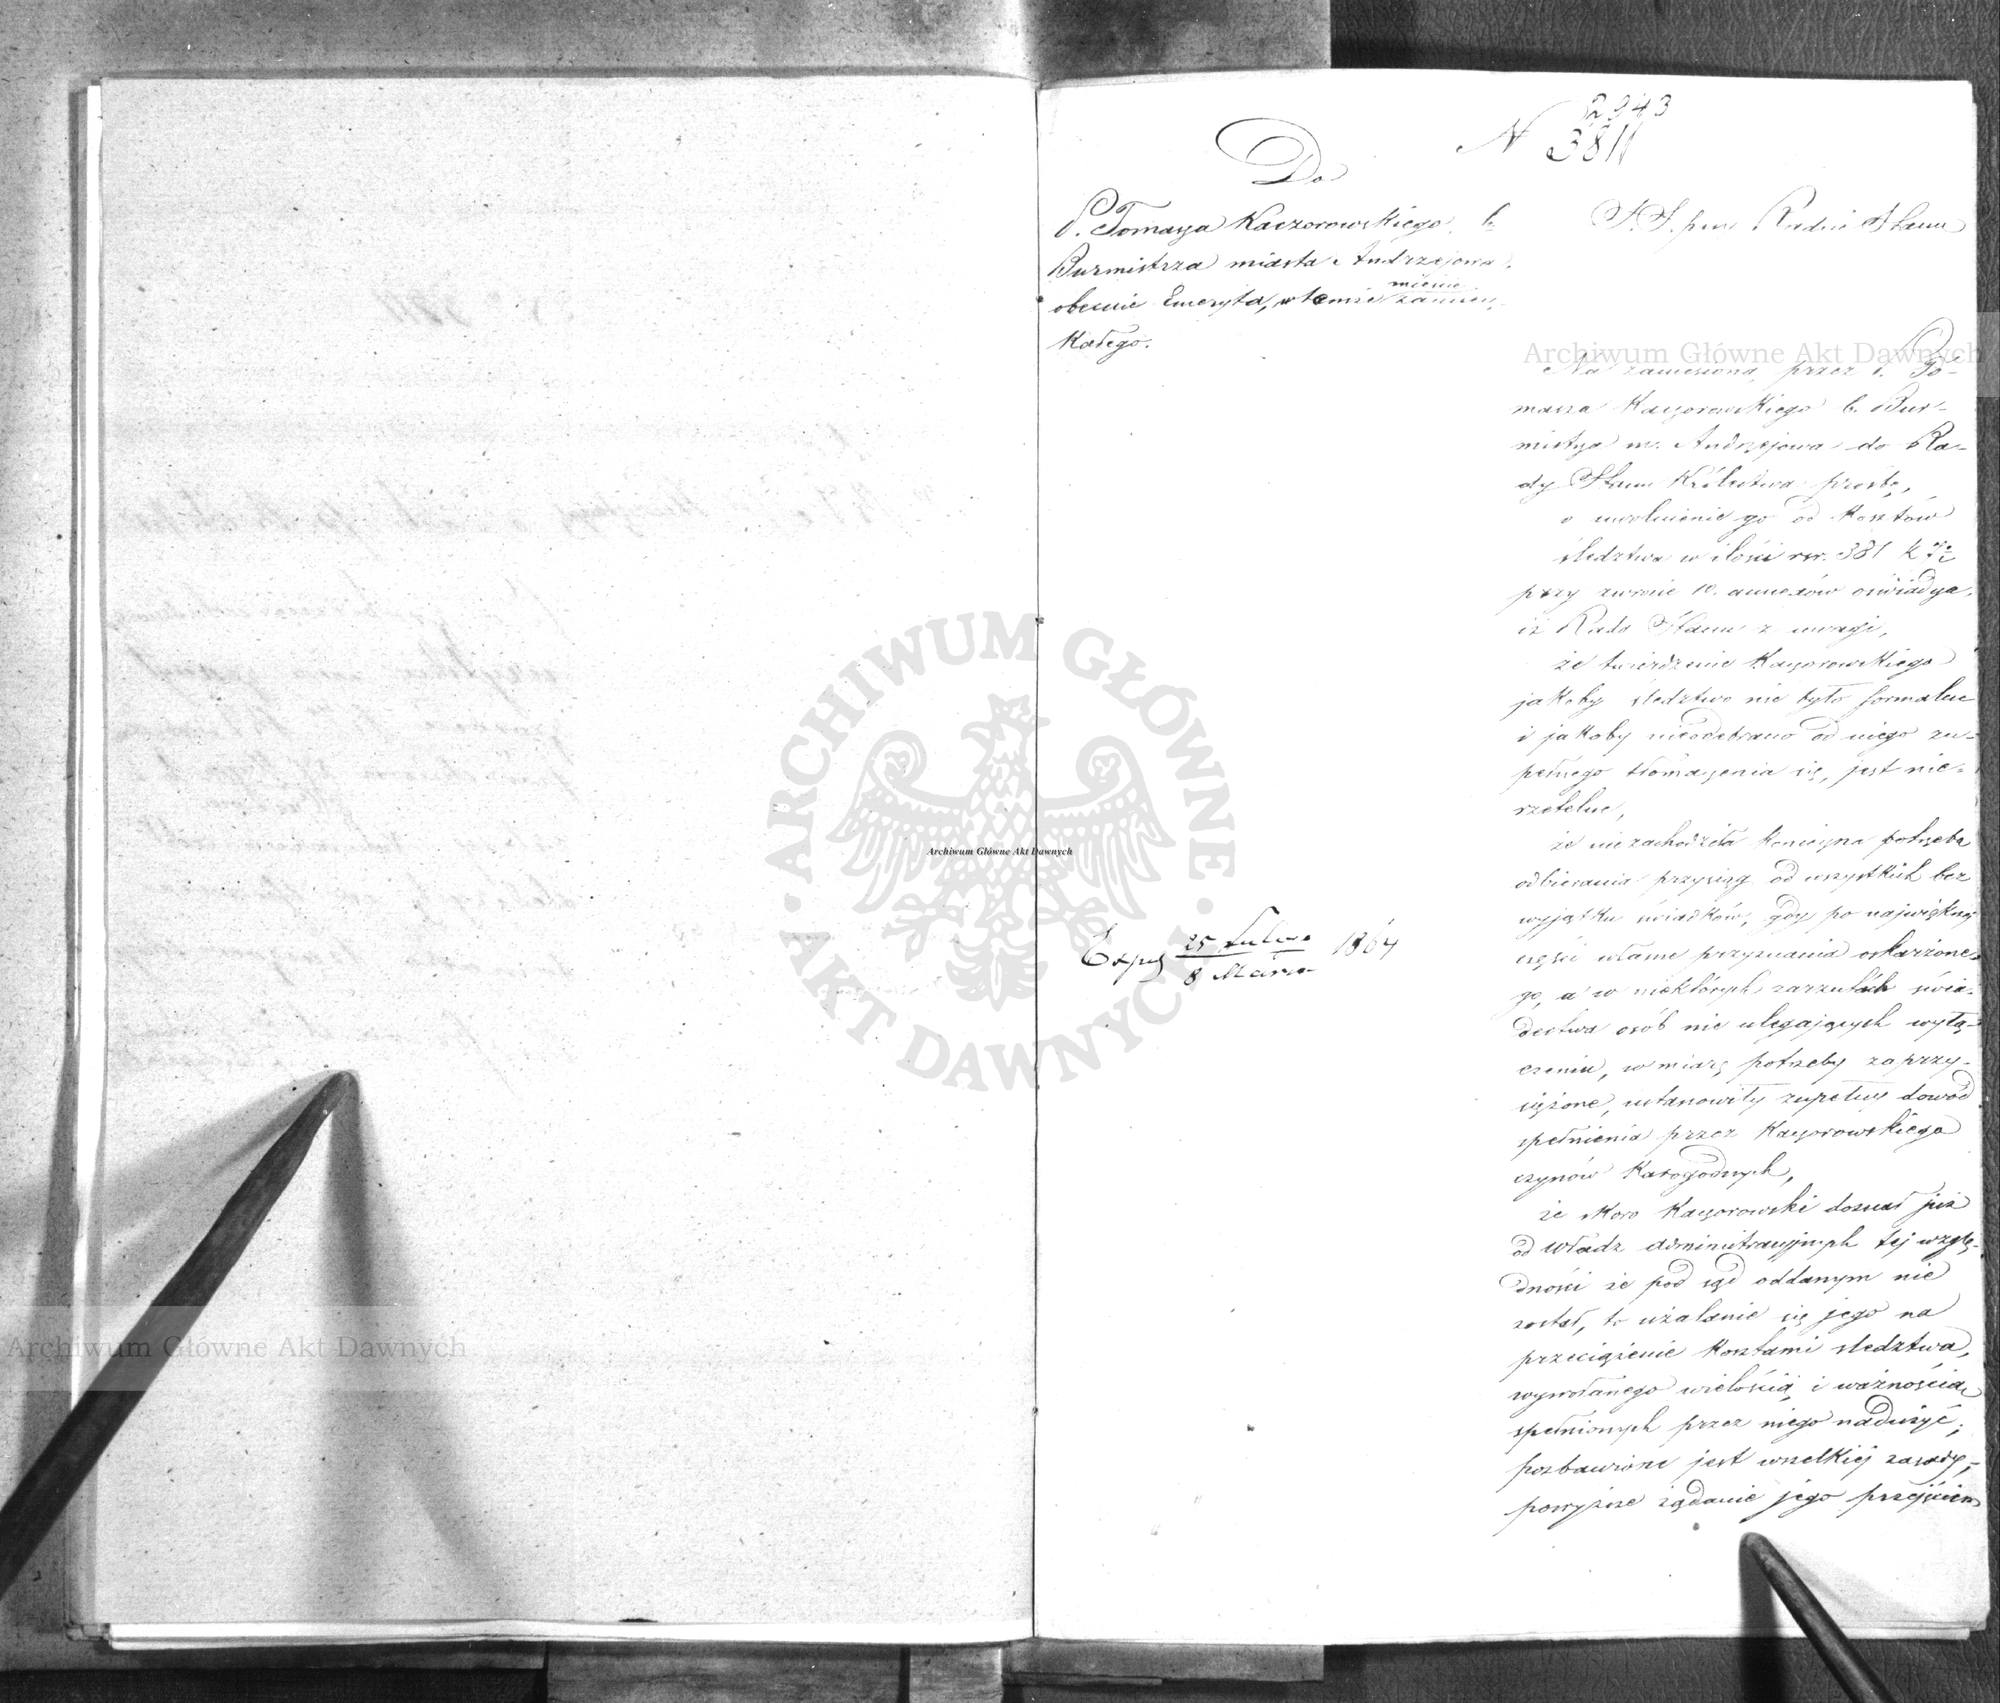 2943
N 3811
Do
P. Tomasza Kaczorowskiego, b.
Burmistrza miasta Andrzejowa,
obecnie Emeryta, w temże
mieście zamiesz-
kałego.
Na zaniesioną przez P. To-
masza Kaczorowskiego b. Bur-
mistrza m. Andrzejowa do Ra-
dy Stanu Królestwa prośbę,
o uwolnienie go od kosztów
śledztwa w ilości rsr. 381 k
przy zwrocie 10. annexów oświadcza,
iż Rada Stanu z uwagi,
że twierdzenie Kaczorowskiego
jakoby śledztwo nie było formalne
i jakoby nieodebrano od niego zu-
pełnego tłomaczenia się, jest nie-
rzetelne,
że nie zachodziła konieczna potrzeba
odbierania przysiąg od wszystkich bez
wyjątku świadków, gdy po największej
części własne przyznania oskarżone-
go, a w niektórych zarzutach świa-
dectwa osób nie ulegających wyłą-
czeniu, w miarę potrzeby zaprzy-
siężone, ustanowiły zupełny dowód
spełnienia przez Kaczorowskiego
czynów karogodnych,
że skoro Kaczorowski doznał już
od władz administracyjnych tej wzglę-
dności że pod sąd oddanym nie
został, to użalanie się jego na
przeciążenie kosztami śledztwa,
wywołanego wielością i ważnością
spełnionych przez niego nadużyć,
pozbawione jest wszelkiej zasady,
powyższe żądanie jego przejściem
Exped 25 Lutego
8 Marca 1864
ARCHIWUM GŁÓWNE AKT DAWNYCH
Archiwum Główne Akt Dawnych
Archiwum Główne Akt Dawnych
Archiwum Główne Akt Dawnych